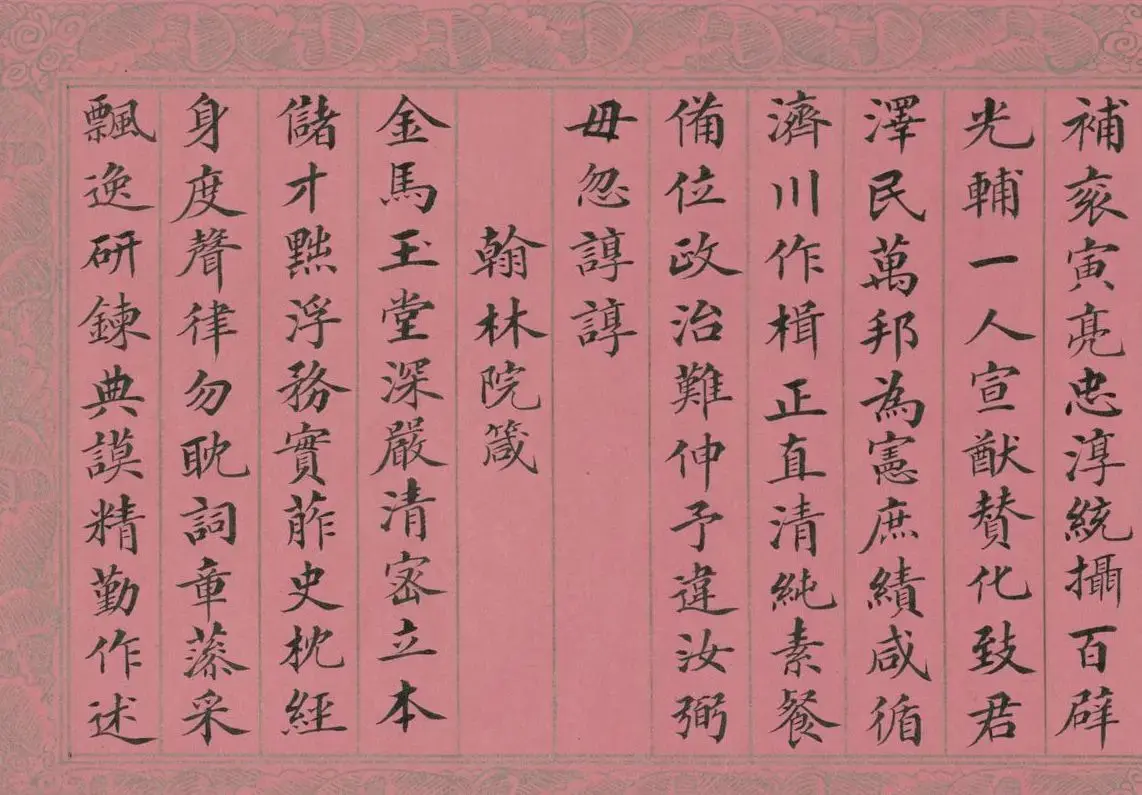 補衮寅亮忠淳統攝百辟
光輔一人宣猷賛化致君
澤民萬邦為憲庶績咸循
濟川作楫正直清純素餐
備位政治難伸予違汝弼
毋忽諄諄
翰林院箴
金馬玉堂深嚴清密立本
儲才黜浮務實葄史枕經
身度聲律勿耽詞章藻采
飄逸研鍊典謨精勤作述